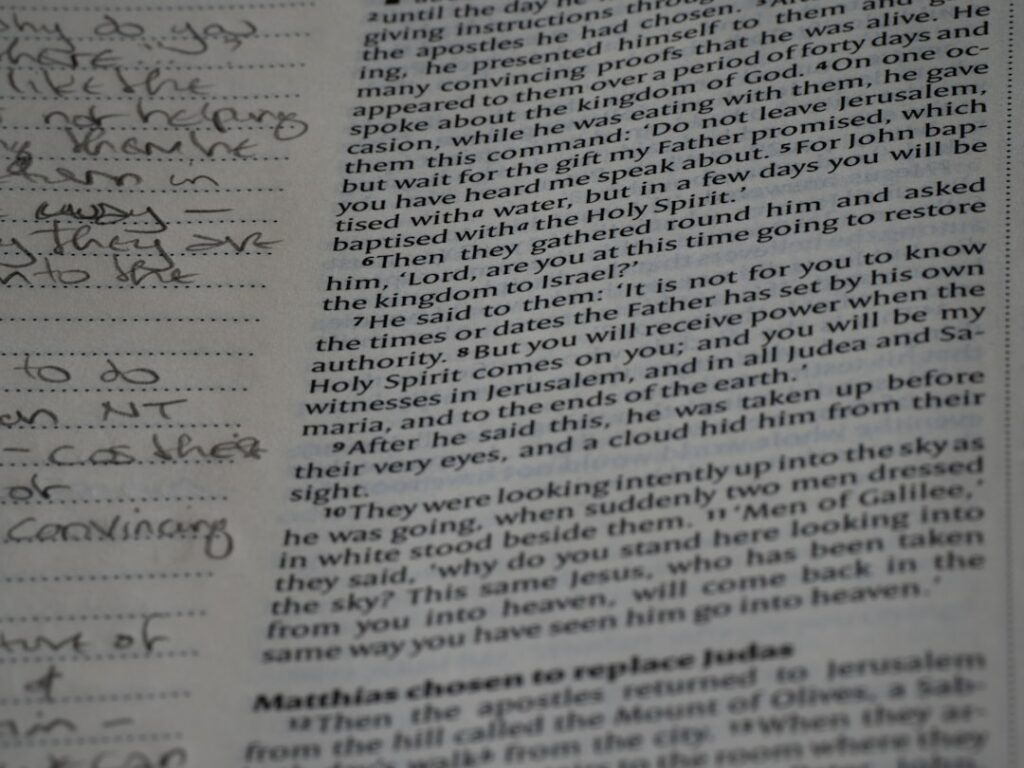 why do you
here...?
like the
not helping
them in
away –
they are
into the
to do
an NT
– cos these
or
convincing
ture of
2until the day he
giving instructions through
the apostles he had chosen.
ing, he presented himself to them and
many convincing proofs that he was alive. He
appeared to them over a period of forty days and
spoke about the kingdom of God. 4On one oc-
casion, while he was eating with them, he gave
them this command: ‘Do not leave Jerusalem,
but wait for the gift my Father promised, which
you have heard me speak about. 5For John bap-
tised witha water, but in a few days you will be
baptised witha the Holy Spirit.’
6Then they gathered round him and asked
him, ‘Lord, are you at this time going to restore
the kingdom to Israel?’
7He said to them: ‘It is not for you to know
the times or dates the Father has set by his own
authority. 8But you will receive power when the
Holy Spirit comes on you; and you will be my
witnesses in Jerusalem, and in all Judea and Sa-
maria, and to the ends of the earth.’
9After he said this, he was taken up before
their very eyes, and a cloud hid him from their
sight.
10They were looking intently up into the sky as
he was going, when suddenly two men dressed
in white stood beside them. 11‘Men of Galilee,’
they said, ‘why do you stand here looking into
the sky? This same Jesus, who has been taken
from you into heaven, will come back in the
same way you have seen him go into heaven.’
Matthias chosen to replace Judas
12Then the apostles returned to Jerusalem
from the hill called the Mount of Olives, a Sab-
walk from the city. 13When they ar-
to the room where they